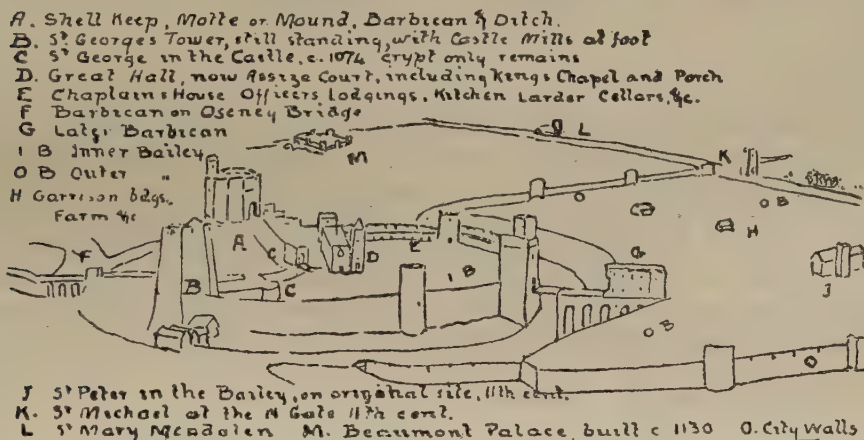 A. Shell Keep, Motte or Mound, Barbican & Ditch.
B. St Georges Tower, still standing, with Castle Mills at foot
C St George in the Castle, c. 1074 crypt only remains
D. Great Hall, now Assize Court, including Kings Chapel and Porch
E Chaplains House Officers Lodgings, Kitchen Larder Cellars, &c.
F Barbican on Oseney Bridge
G Later Barbican
I B Inner Bailey
O B Outer "
H Garrison bdgs.
Farm &c
L
M
K
O
O B
C
H
F
A
C
D
E
G
I B
B
C
J
O B
O
J St Peter in the Bailey, on original site, 11th cent.
K. St Michael at the N Gate 11th cent.
L St Mary Magdalen M. Beaumont Palace, built c 1130 O. City Walls